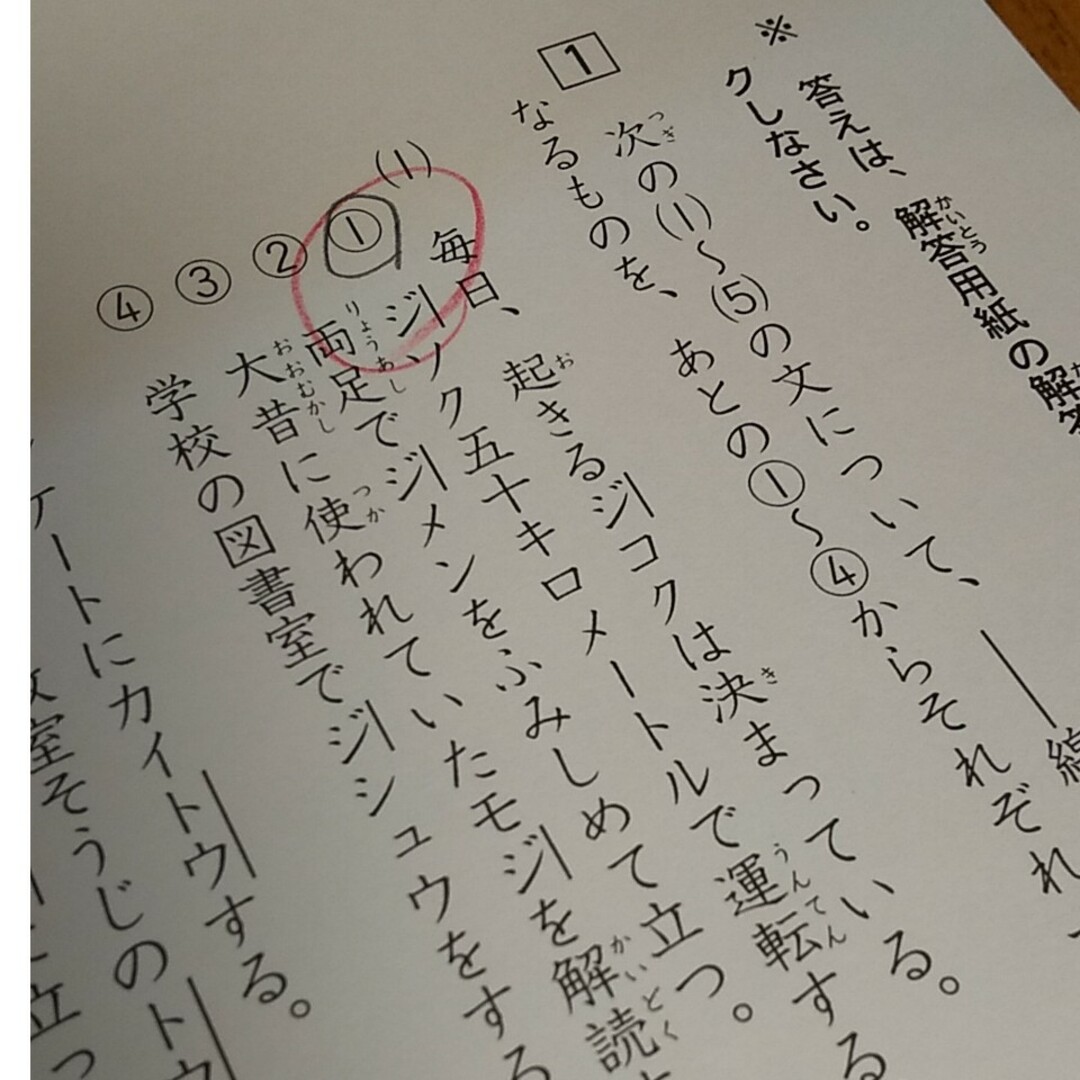 ※ 答えは、解答用紙の解答
クしなさい。
1 次の(1)～(5)の文について、――線
なるものを、あとの①～④からそれぞれ
(1) 毎日、起きるジコクは決まっている。
① ジソク五十キロメートルで運転する
② 両足でジメンをふみしめて立つ。
③ 大昔に使われていたモジを解読
④ 学校の図書室でジシュウをする
ケートにカイトウする。
室そうじのトウ
立っ